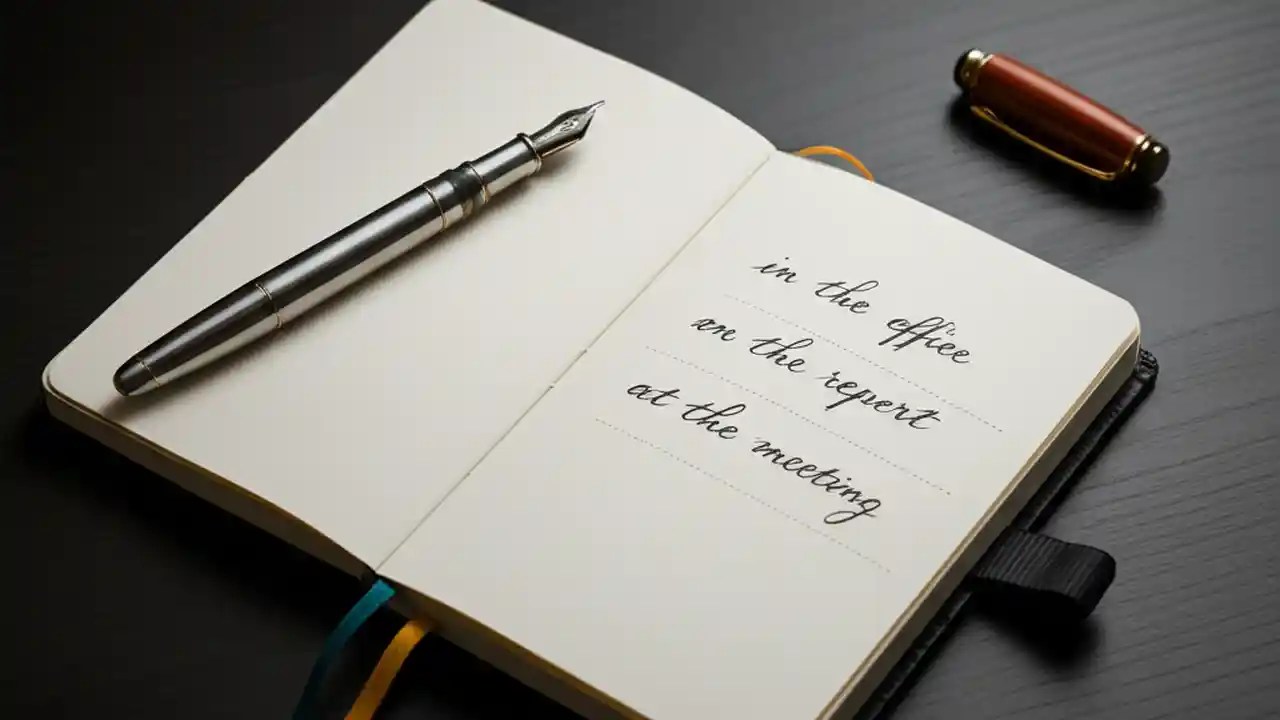 in the office
on the report
at the meeting